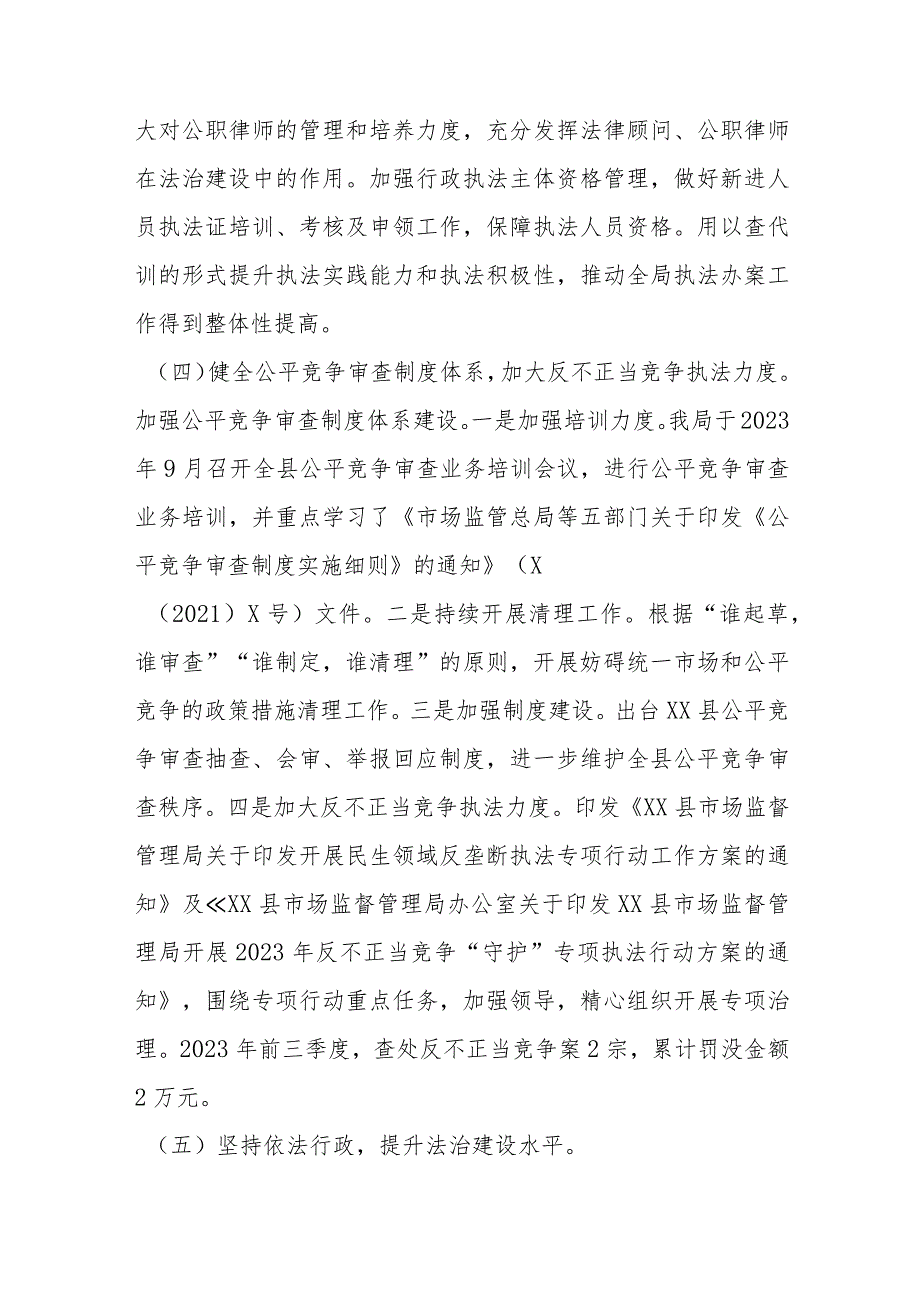 大对公职律师的管理和培养力度，充分发挥法律顾问、公职律师
在法治建设中的作用。加强行政执法主体资格管理，做好新进人
员执法证培训、考核及申领工作，保障执法人员资格。用以查代
训的形式提升执法实践能力和执法积极性，推动全局执法办案工
作得到整体性提高。
（四）健全公平竞争审查制度体系，加大反不正当竞争执法力度。
加强公平竞争审查制度体系建设。一是加强培训力度。我局于 2023
年 9 月召开全县公平竞争审查业务培训会议，进行公平竞争审查
业务培训，并重点学习了《市场监管总局等五部门关于印发《公
平竞争审查制度实施细则》的通知》（X
（2021）X 号）文件。二是持续开展清理工作。根据“谁起草，
谁审查”“谁制定，谁清理”的原则，开展妨碍统一市场和公平
竞争的政策措施清理工作。三是加强制度建设。出台 XX 县公平竞
争审查抽查、会审、举报回应制度，进一步维护全县公平竞争审
查秩序。四是加大反不正当竞争执法力度。印发《XX 县市场监督
管理局关于印发开展民生领域反垄断执法专项行动工作方案的通
知》及≪XX 县市场监督管理局办公室关于印发 XX 县市场监督管
理局开展 2023 年反不正当竞争“守护”专项执法行动方案的通
知》，围绕专项行动重点任务，加强领导，精心组织开展专项治
理。2023 年前三季度，查处反不正当竞争案 2 宗，累计罚没金额
2 万元。
（五）坚持依法行政，提升法治建设水平。